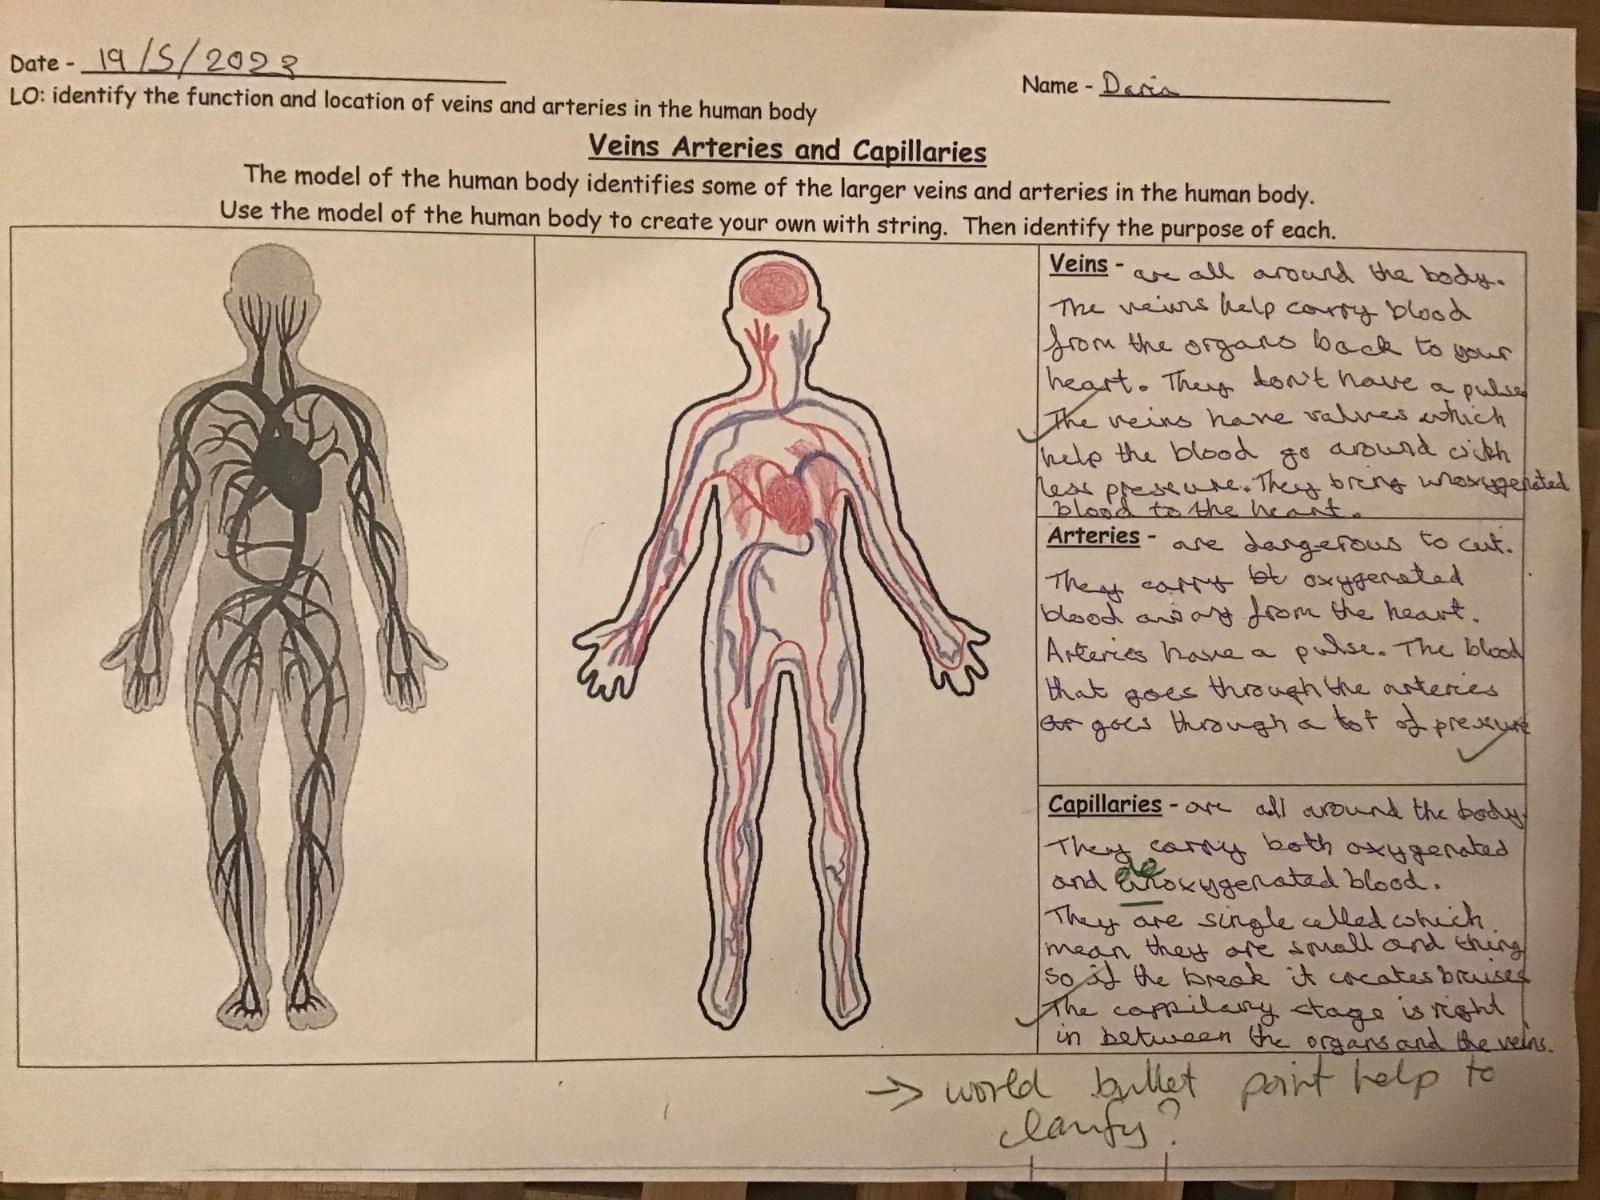 Date - 19/5/2023
Name - Daria
LO: identify the function and location of veins and arteries in the human body
Veins Arteries and Capillaries
The model of the human body identifies some of the larger veins and arteries in the human body.
Use the model of the human body to create your own with string. Then identify the purpose of each.
Veins - are all around the body.
The veins help carry blood
from the organs back to your
heart. They don't have a pulse
The veins have valves which
help the blood go around with
less pressure. They bring unoxygenated
blood to the heart.
Arteries - are dangerous to cut.
They carry bt oxygenated
blood away from the heart.
Arteries have a pulse. The blood
that goes through the arteries
or goes through a lot of pressure
Capillaries - are all around the body.
They carry both oxygenated
de
and unoxygenated blood.
They are single celled which
mean they are small and thing
so if the break it creates bruises
The cappilary stage is right
in between the organs and the veins.
→ world bullet point help to
clarify?